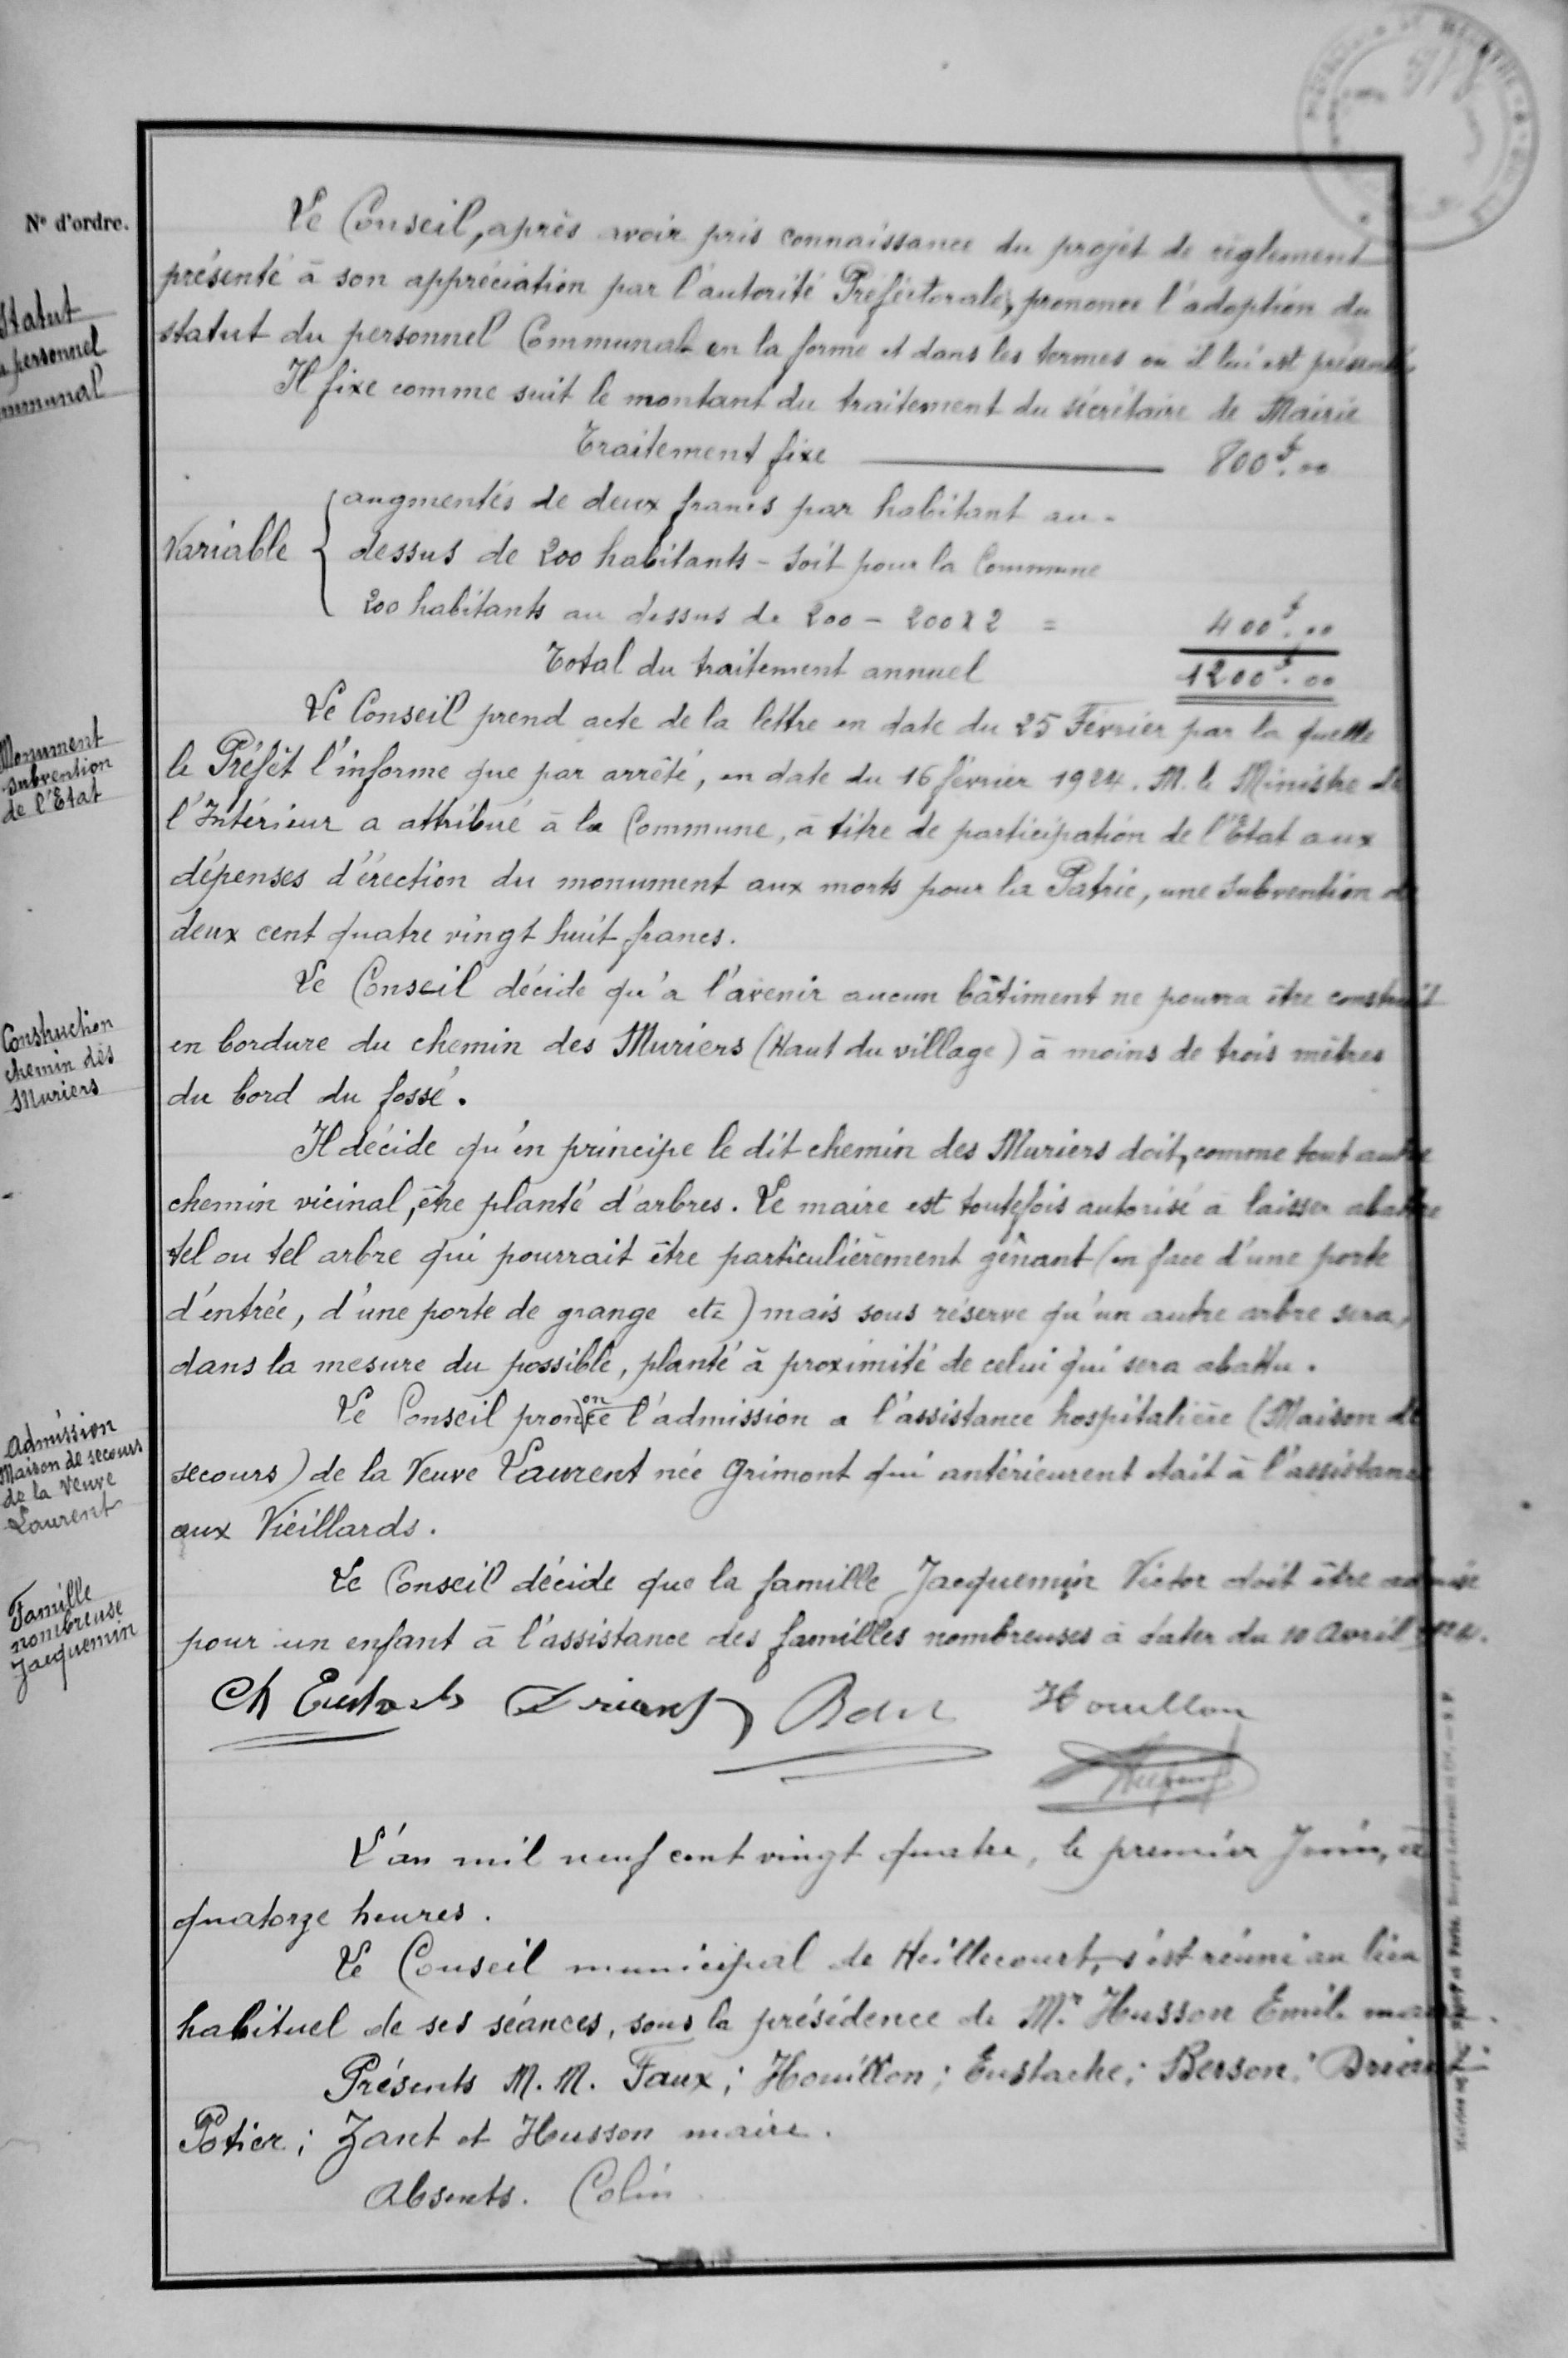 N° d'ordre.
Statut
personnel
Le Conseil, après avoir pris connaissance du projet de règlement
présenté à son appréciation par l'autorité Préféctorale, prononce l'adoption du
statut du personnel Communal en la forme et dans les termes où il lui est présenté
Il fixe comme suit le montant du traitement du sécrétaire de Mairie
Traitement fixe 800f.00
Variable
augmentés de deux francs par habitant au-
dessus de 200 habitants - soit pour la Commune
200 habitants au dessus de 200 - 200 x 2 = 400f.00
Total du traitement annuel 1200f.00
Monument
subvention
de l'Etat
Le Conseil prend acte de la lettre en date du 25 Février par la quelle
le Préfêt l'informe que par arrêté, en date du 16 février 1924. M. le Ministre de
l'Intérieur a attribué à la Commune, à titre de participation de l'Etat aux
dépenses d'érection du monument aux morts pour la Patrie, une subvention de
deux cent quatre vingt huit francs.
Construction
chemin des
Muriers
Le Conseil décide qu'a l'avenir aucun bâtiment ne pourra être construit
en bordure du chemin des Muriers (Haut du village) à moins de trois mètres
du bord du fossé.
Il décide qu'en principe le dit chemin des Muriers doit, comme tout autre
chemin vicinal, être planté d'arbres. Le maire est toutefois autorisé à laisser abattre
tel ou tel arbre qui pourrait être particulièrement gênant (en face d'une porte
d'entrée, d'une porte de grange etc) mais sous réserve qu'un autre arbre sera,
dans la mesure du possible, planté à proximité de celui qui sera abattu.
Admission
Maison de secours
de la Veuve
Laurent
Le Conseil prononce l'admission a l'assistance hospitalière (Maison de
secours) de la Veuve Laurent née Grimont qui antérieurent était à l'assistance
aux Vieillards.
Famille
nombreuse
Jacquemin
Le Conseil décide que la famille Jacquemin Victor doit être admise
pour un enfant à l'assistance des familles nombreuses à dater du 10 Avril 1924.
Ch Eustache Driant Houillon
L'an mil neuf cent vingt quatre, le premier Juin, à
quatorze heures.
Le Conseil municipal de Heillecourt, s'est réuni au lieu
habituel de ses séances, sous la présidence de Mr. Husson Emile maire.
Présents M.M. Faux; Houillon; Eustache; Berson; Driant;
Potier; Zant et Husson maire.
Absents. Colin